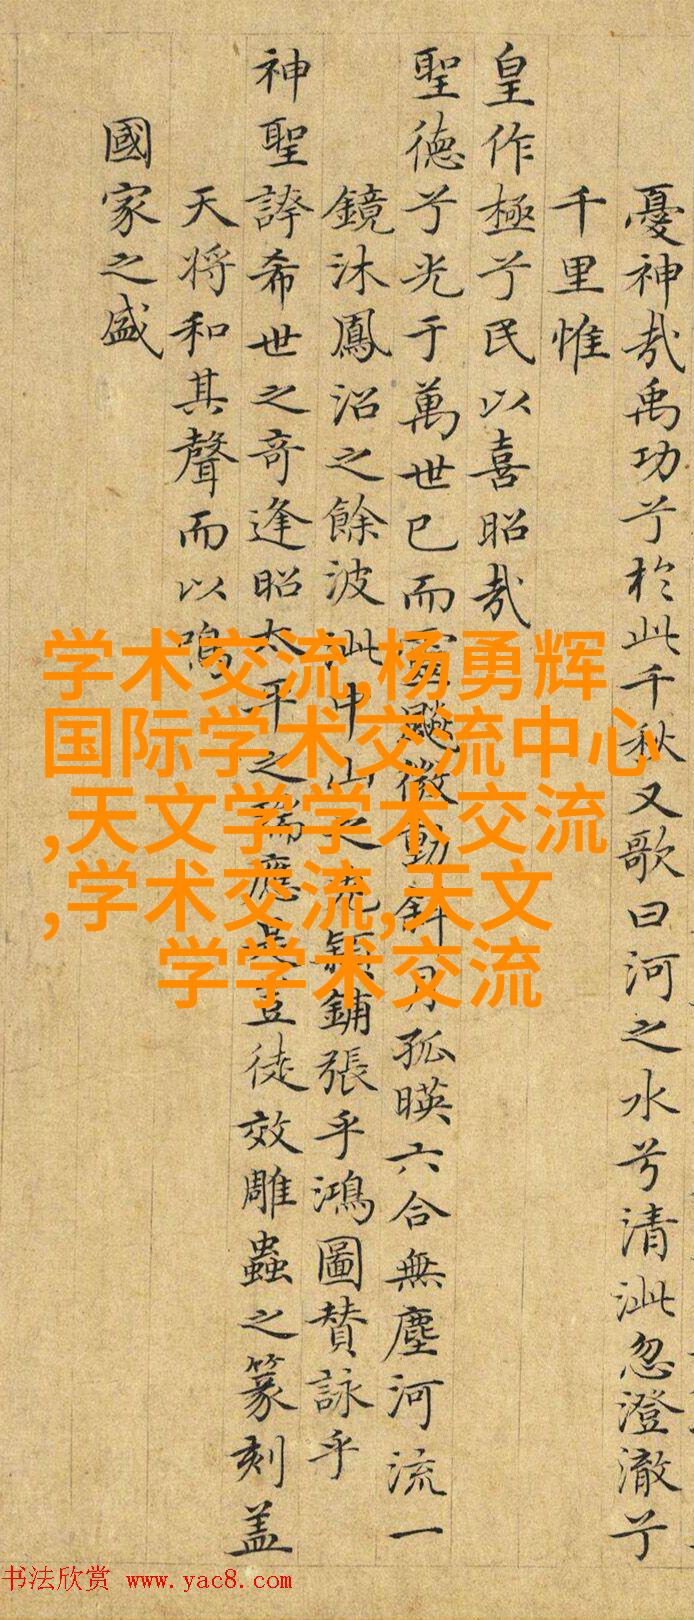 憂神哉禹功兮於此千秋又歌曰河之水兮清泚忽澄澈兮
千里惟
皇作極兮民以喜昭哉
聖德兮光于萬世已而靈飈微動斜月孤暎六合無塵河流一
鏡沐鳳沼之餘波泚中山之兔穎鋪張乎鴻圖賛詠乎
神聖誇希世之奇逢昭太平之瑞應是豈徒效雕蟲之篆刻盖
天将和其聲而以鳴
國家之盛
学术交流,杨勇辉
国际学术交流中心
,天文学学术交流
,学术交流,天文
学学术交流
书法欣赏 www.yac8.com